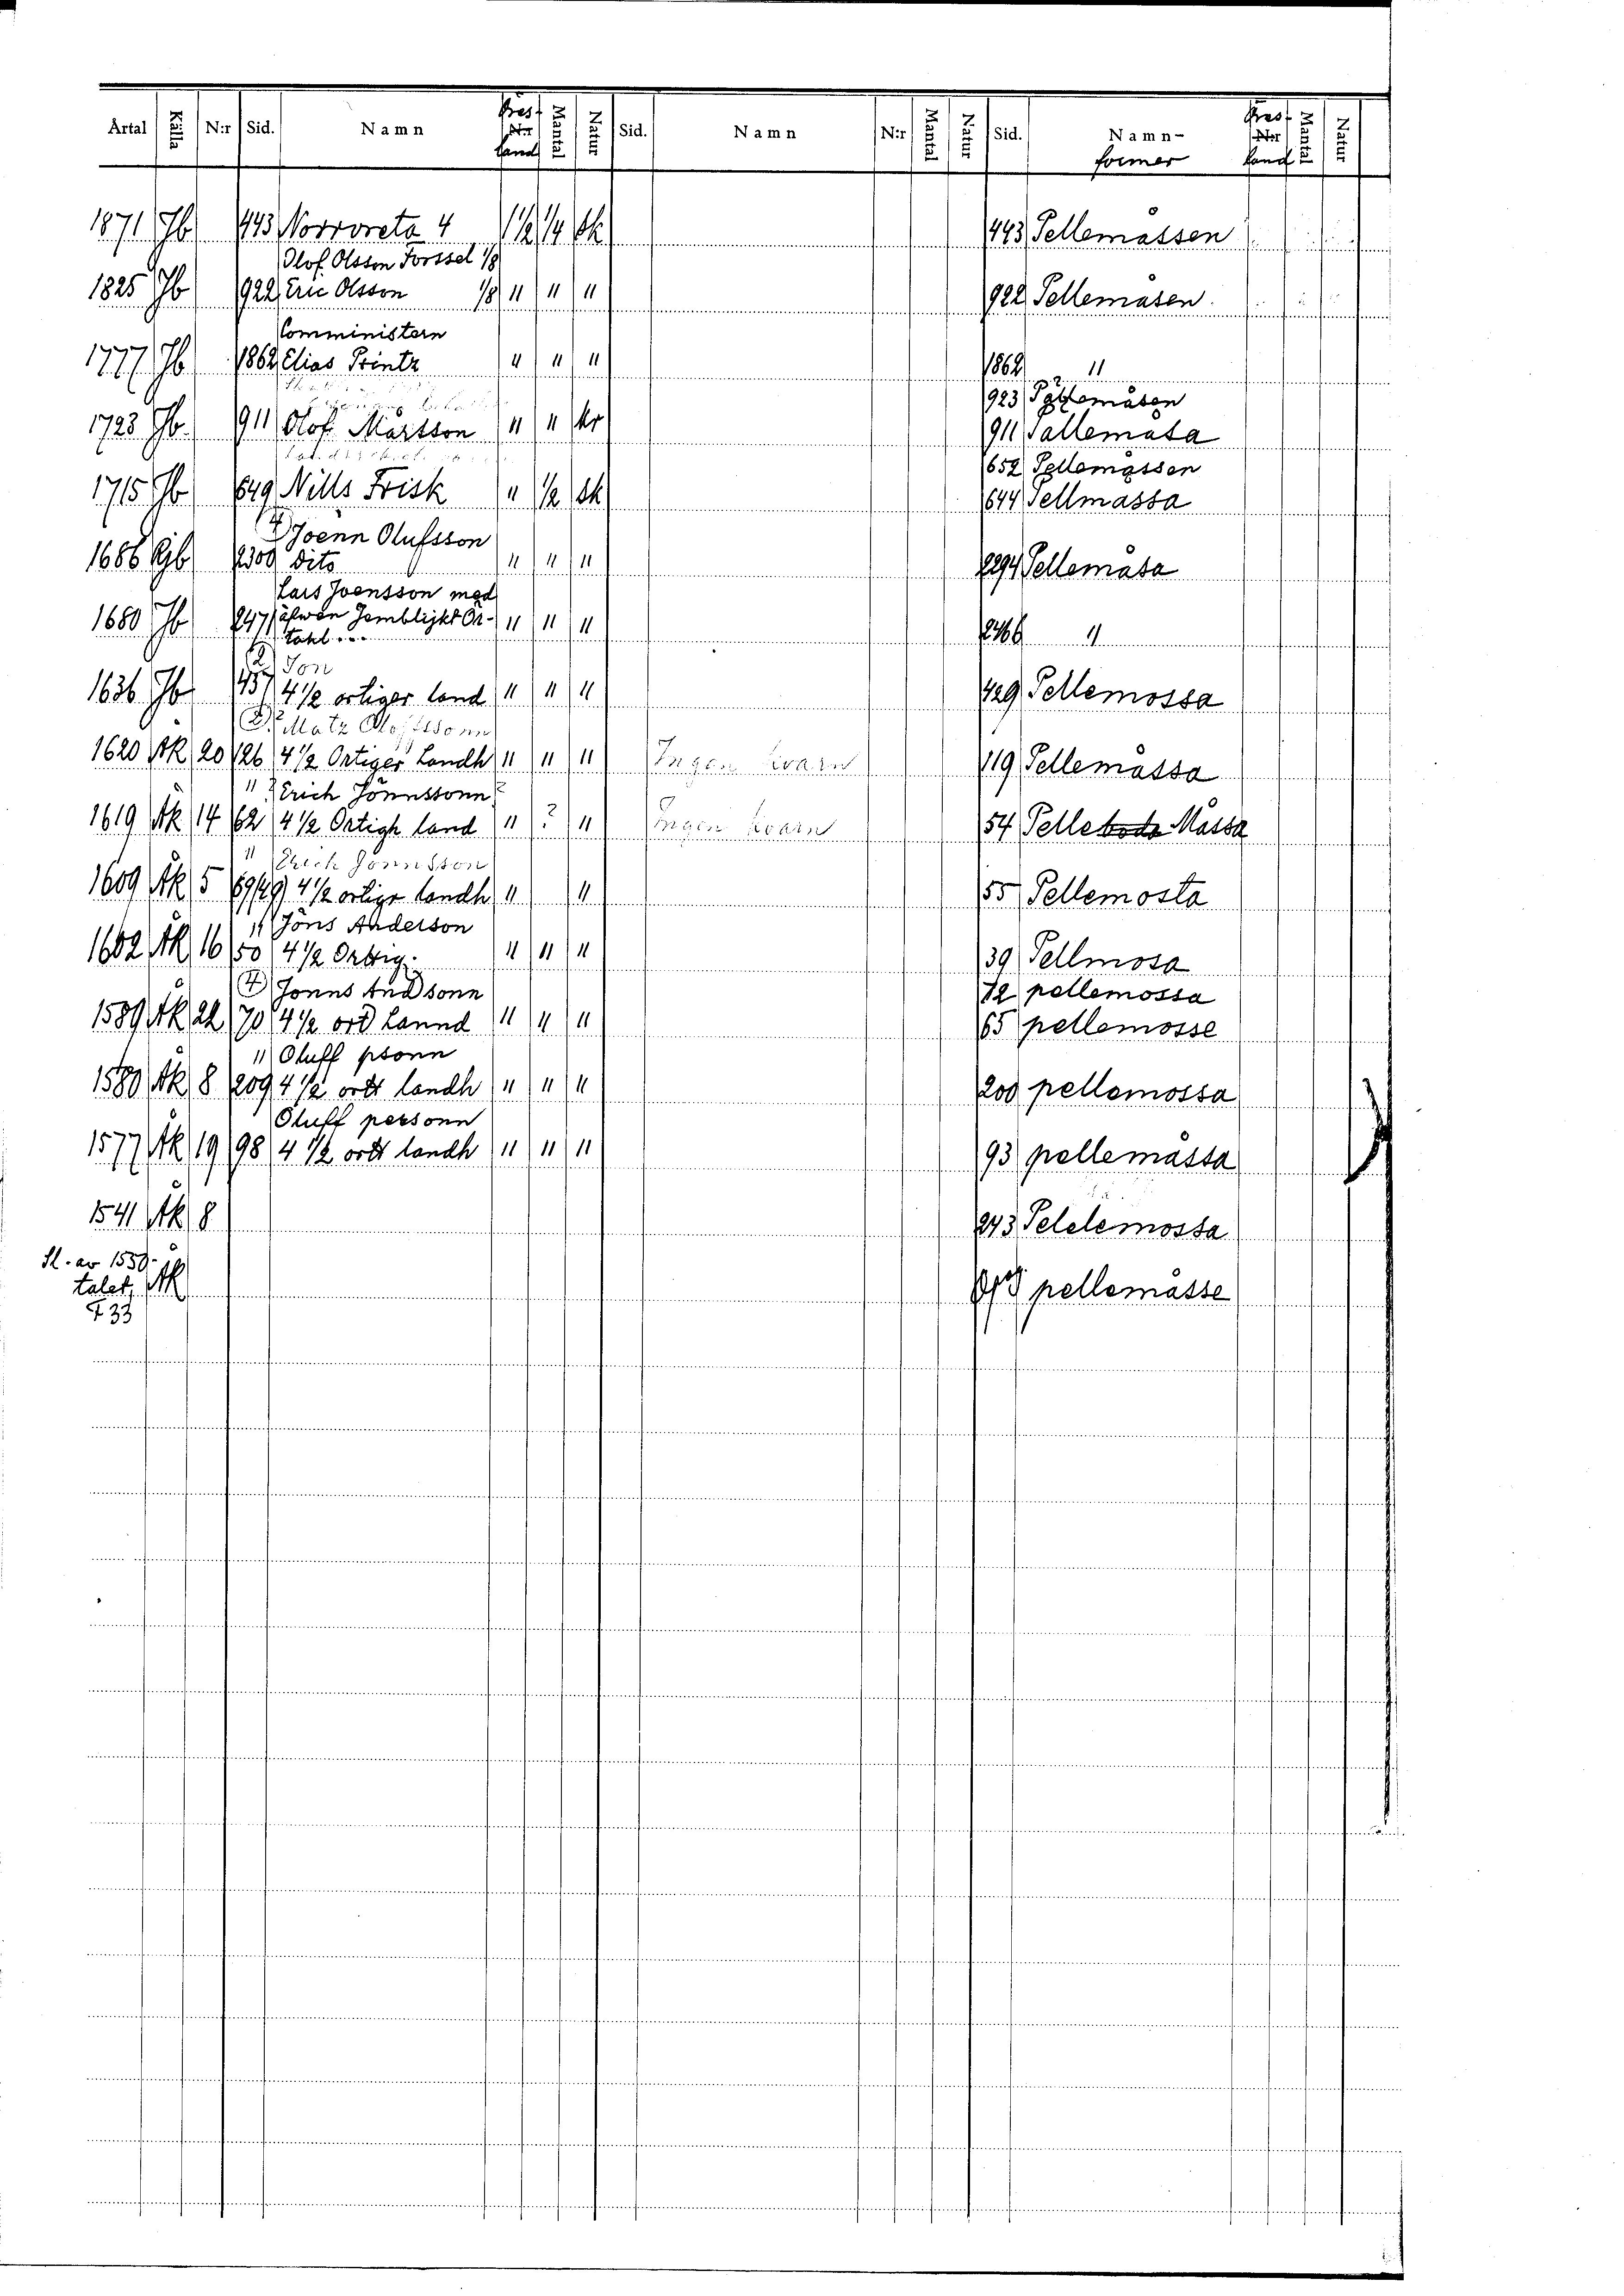 Årtal Källa N:r Sid. Namn Prest Nr land Mantal Natur Sid. Namn N:r Mantal Natur Sid. Namn- former Prest Nr land Mantal Natur
1871 Jb 443 Norroreta 4 1 1/2 1/4 Sk 443 Pellemåssen
Olof Olsson Forssel 1/8
1825 Jb 922 Eric Olsson 1/8 " " " 922 Pellemåsen
Comministern
1777 Jb 1862 Elias Printz " " " 1862 "
923 Pellemåsen
1723 Jb 911 Olof Mårtson " " Kr 911 Pallemåsa
652 Pellemåssen
1715 Jb 649 Nills Frisk " 1/2 Sk 644 Pellmassa
Joenn Olufsson
1686 Jb 2300 dito " " " 2294 Pellemåsa
Lars Joensson med
1680 Jb 247 äfwen Jemblijkt Ör- " " " 246 "
tahl...
Jon
1636 Jb 437 4 1/2 örtiger land " " " 429 Pellemossa
Matz Oloffsonn
1620 Åk 20 126 4 1/2 Örtiger Landh " " " Ingen kvarn 119 Pellemåssa
" Erich Jönnssonn
1619 Åk 14 62 4 1/2 Örtigh land " ? " Ingen kvarn 54 Pelleboda Måssa
" Erich Jönnsson
1609 Åk 5 69/49 4 1/2 örtige landh " " 55 Pellemosta
" Jöns Anderson
1602 Åk 16 50 4 1/2 Örttig. " " " 39 Pellmosa
Jonns Andsonn 12 pellemossa
1589 Åk 22 70 4 1/2 ord Lannd " " " 65 pellemosse
" Oluff psonn
1580 Åk 8 209 4 1/2 ordt landh " " " 200 pellemossa
Oluff personn
1577 Åk 19 98 4 1/2 ordt landh " " " 93 pellemåssa
1541 Åk 8 243 Pelelemossa
Sl. av 1550-
talet, Åk pellemåsse
F 33